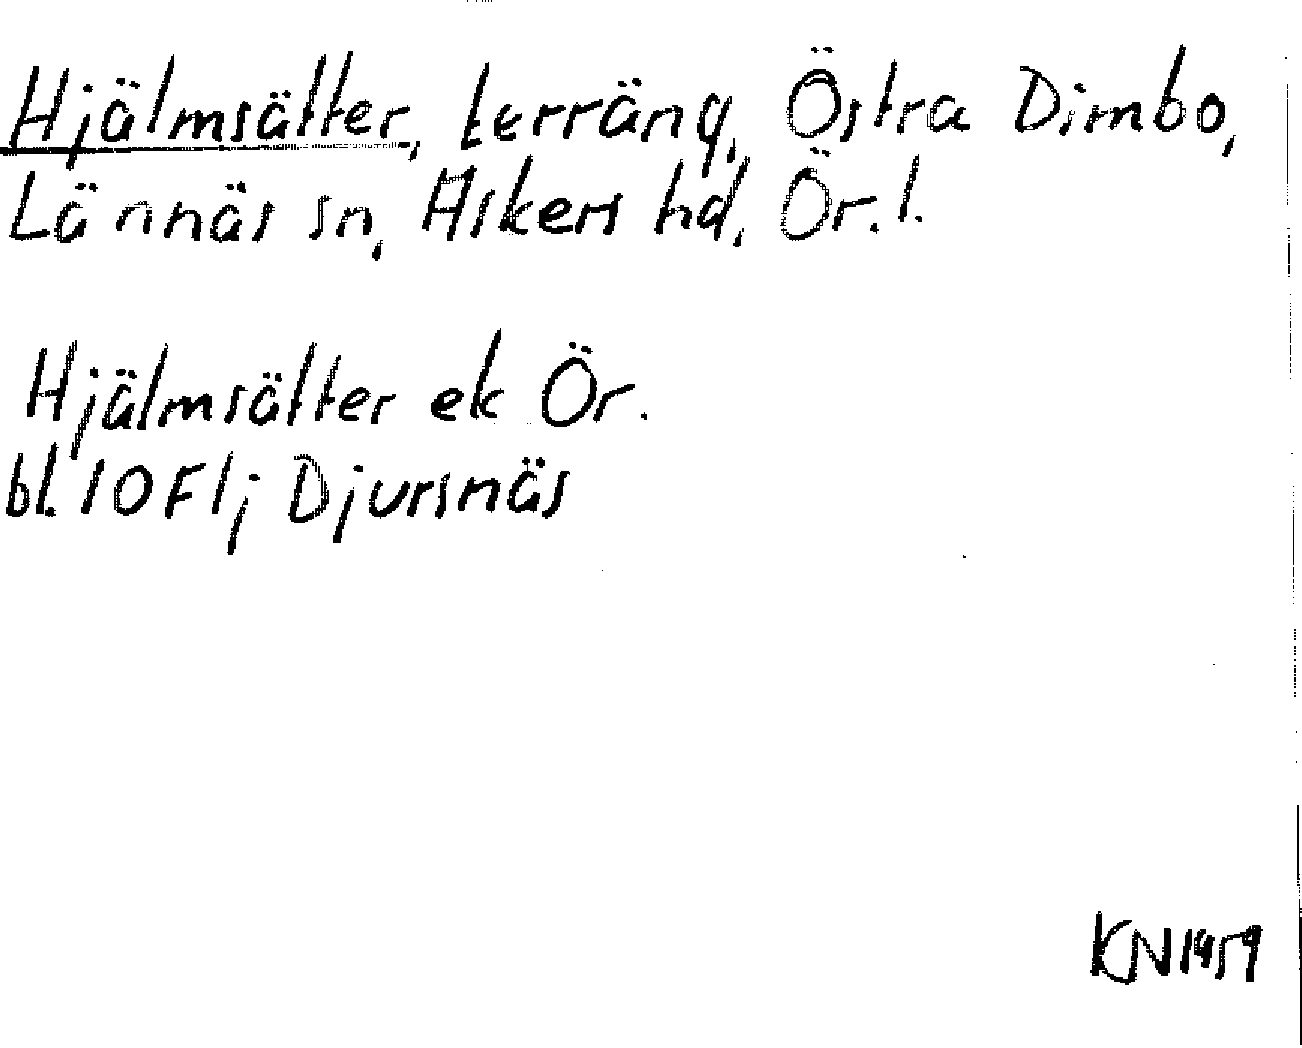 Hjälmsätter, terräng, Östra Dimbo,
Lännäs sn, Askers hd, Ör. l.
Hjälmsätter ek Ör.
bl. 10F1j Djursnäs
KN1959